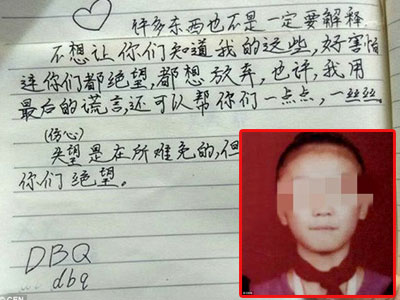 许多东西也不是一定要解释
不想让你们知道我的这些,好害怕
连你们都绝望,都想放弃,也许,我用
最后的谎言,还可以帮你们一点点,一丝丝
(伤心)
失望是在所难免的,但
你们绝望。
DBQ
dbq
© CEN